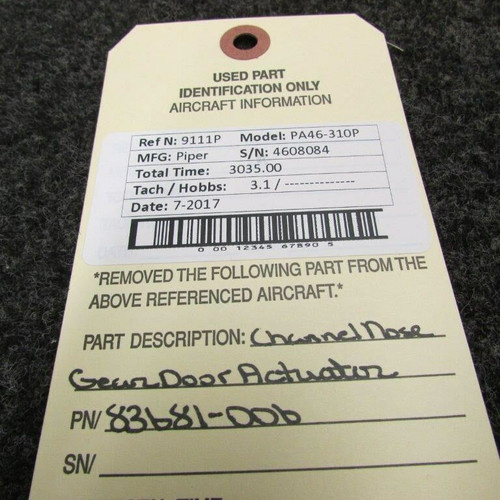 USED PART
IDENTIFICATION ONLY
AIRCRAFT INFORMATION
Ref N: 9111P Model: PA46-310P
MFG: Piper S/N: 4608084
Total Time: 3035.00
Tach / Hobbs: 3.1 / -------------
Date: 7-2017
0 00 12345 67890 5
*REMOVED THE FOLLOWING PART FROM THE
ABOVE REFERENCED AIRCRAFT.*
PART DESCRIPTION: Channel Nose
Gear Door Actuator
PN/ 83681-006
SN/